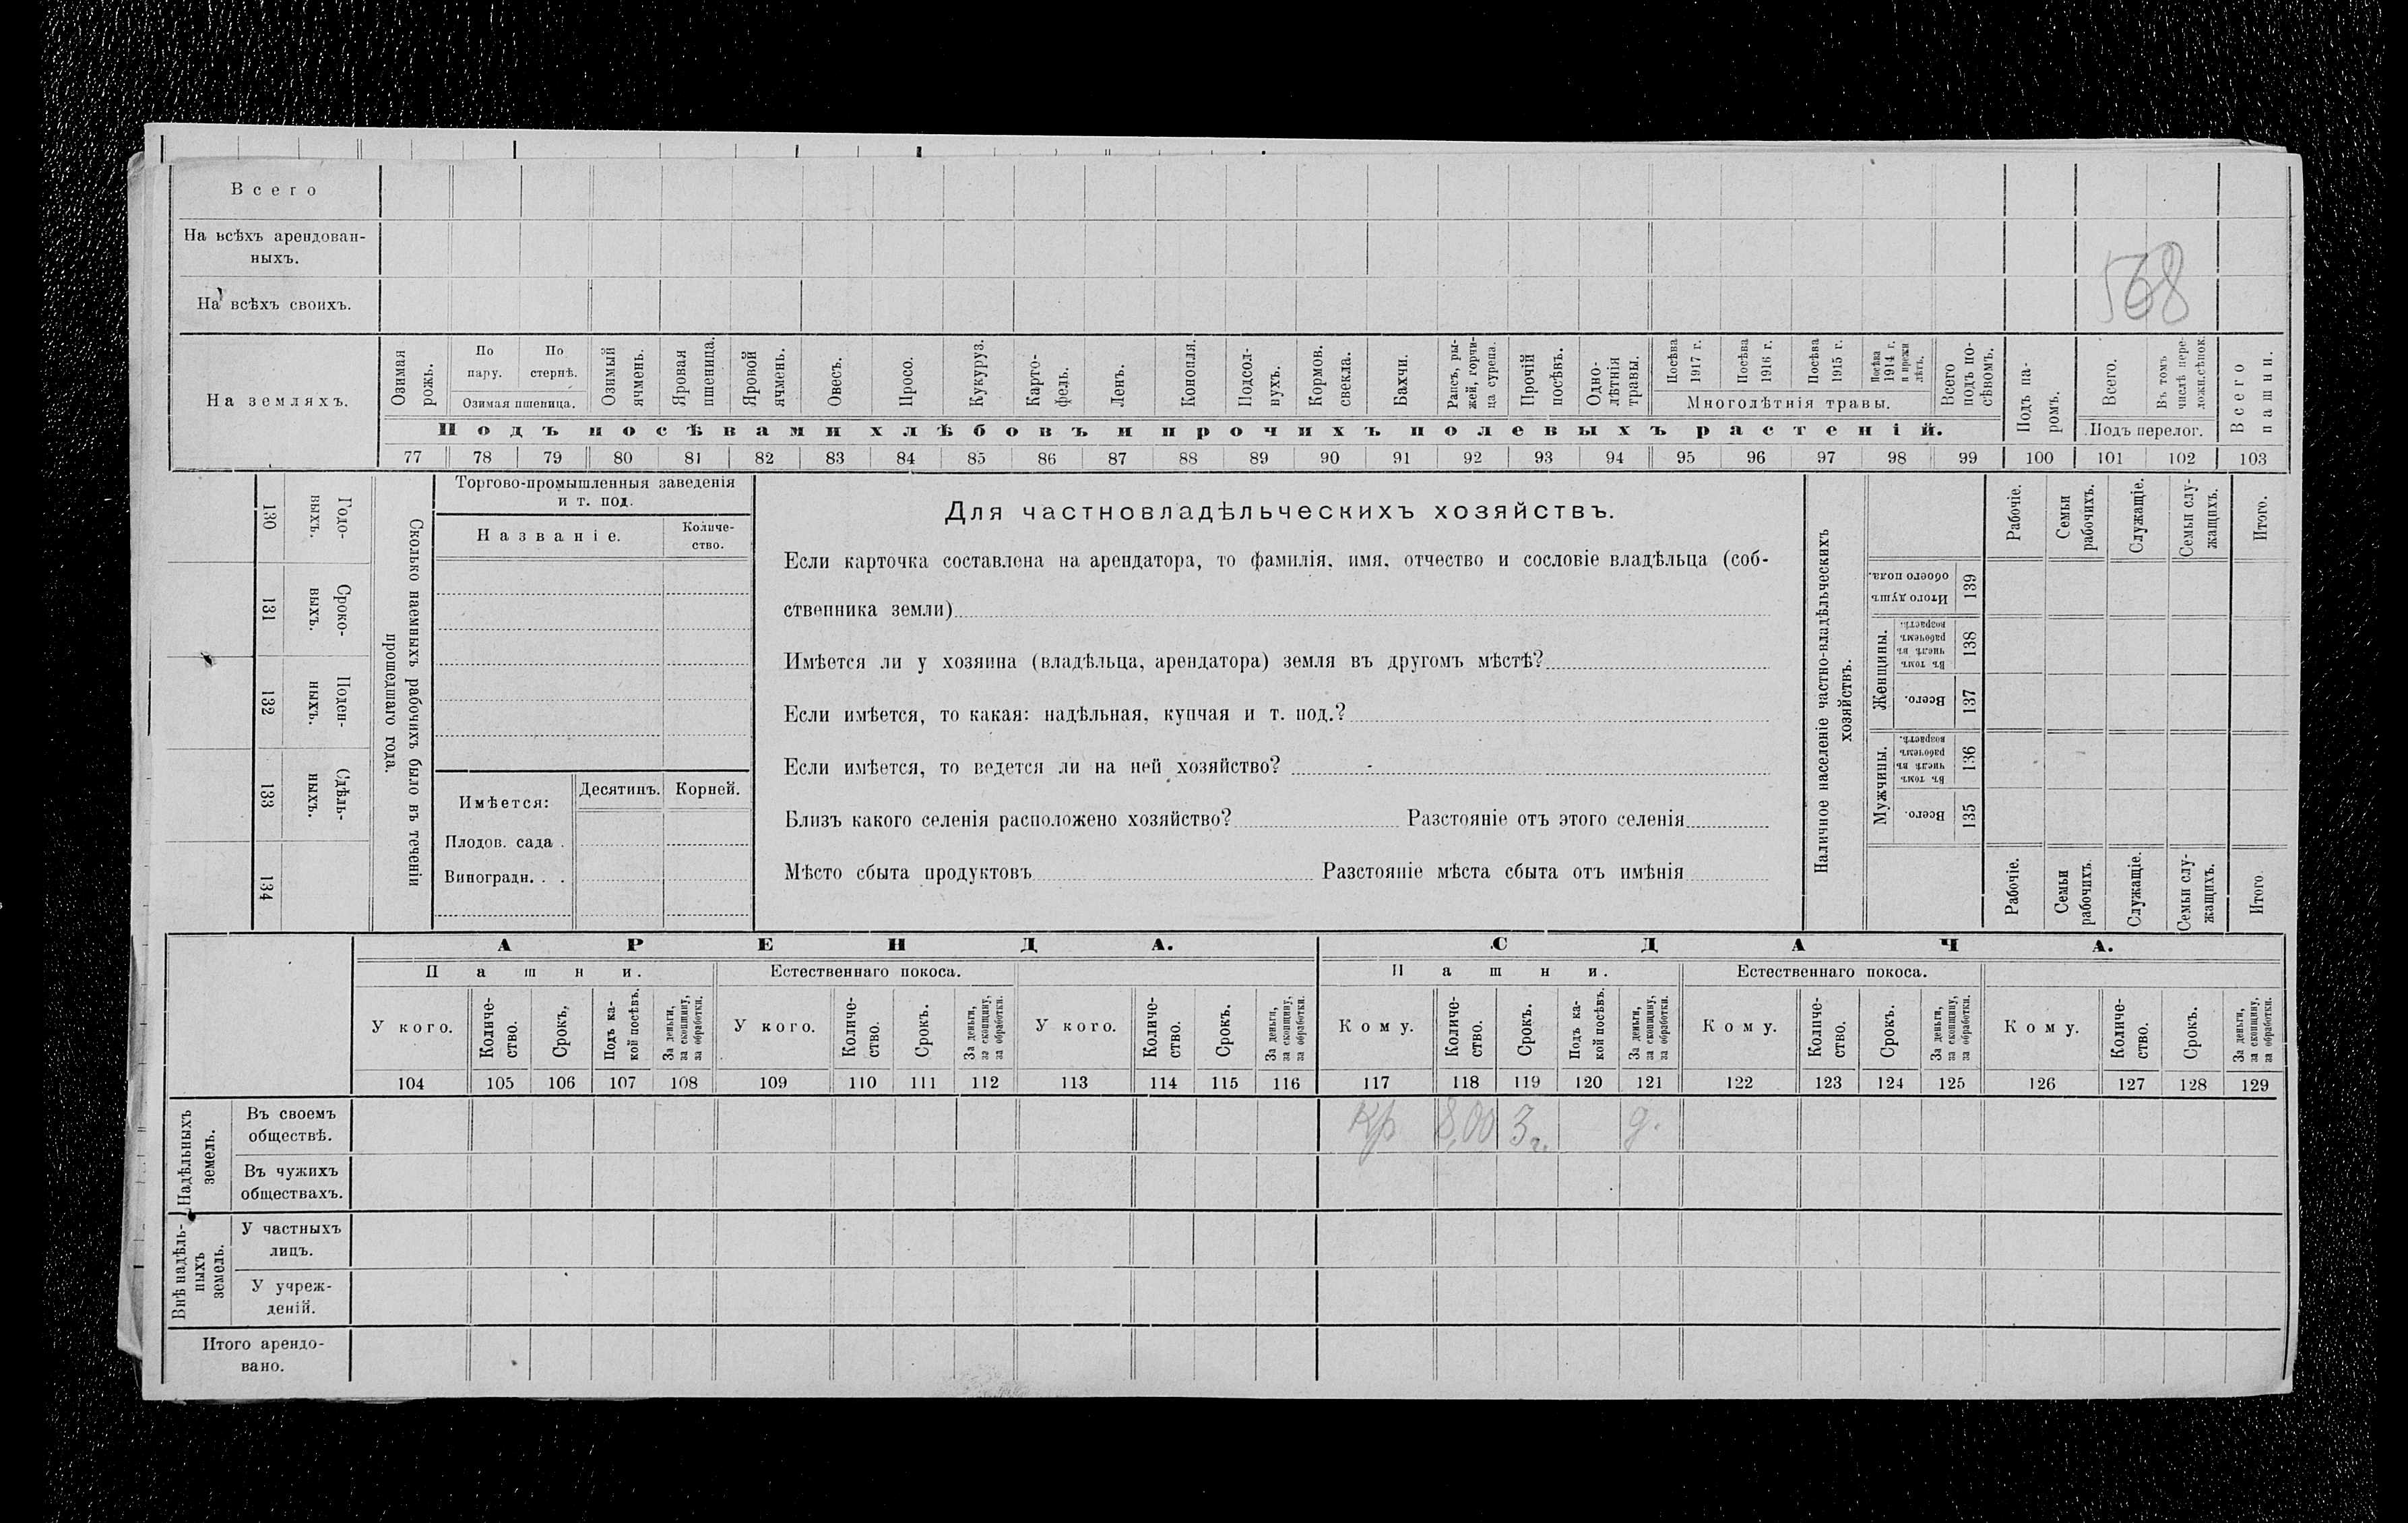 Всего
На всѣхъ арендован-
ныхъ.
568
На всѣхъ своихъ.
На земляхъ.
Озимая рожь.
По пару.
По стернѣ.
Озимая пшеница.
Озимый ячмень.
Яровая пшеница.
Яровой ячмень.
Овесъ.
Просо.
Кукуруз.
Карто-
фель.
Ленъ.
Конопля.
Подсол-
нухъ.
Кормов. свекла.
Бахчи.
Рапсъ, ры-
жей, горчи-
ца сурепа.
Прочій посѣвъ.
Одно-
лѣтнія травы.
Посѣва 1917 г.
Посѣва 1916 г.
Посѣва 1915 г.
Посѣва 1914 г. и прежн лѣтъ.
Многолѣтнія травы.
Всего подъ по-
сѣвомъ.
Подъ па-
ромъ.
Всего.
Въ томъ числѣ пере-
ложн.сѣнок.
Подъ перелог.
Всего пашни.
Подъ посѣвами хлѣбовъ и прочихъ полевыхъ растеній.
77 78 79 80 81 82 83 84 85 86 87 88 89 90 91 92 93 94 95 96 97 98 99 100 101 102 103
130 Годо-
выхъ.
131 Сроко-
выхъ.
132 Поден-
ныхъ.
133 Сдѣль-
ныхъ.
134
Сколько наемныхъ рабочихъ было въ теченіи
прошедшаго года.
Торгово-промышленныя заведенія
и т. под.
Названіе.
Количе-
ство.
Имѣется:
Десятинъ.
Корней.
Плодов. сада .
Виноградн. . .
Для частновладѣльческихъ хозяйствъ.
Если карточка составлена на арендатора, то фамилія, имя, отчество и сословіе владѣльца (соб-
ственника земли)
Имѣется ли у хозяина (владѣльца, арендатора) земля въ другомъ мѣстѣ?
Если имѣется, то какая: надѣльная, купчая и т. под.?
Если имѣется, то ведется ли на ней хозяйство?
Близъ какого селенія расположено хозяйство? Разстояніе отъ этого селенія
Мѣсто сбыта продуктовъ Разстояніе мѣста сбыта отъ имѣнія
Наличное населеніе частно-владѣльческихъ
хозяйствъ.
Рабочіе.
Семьи рабочихъ.
Служащіе.
Семьи слу-
жащихъ.
Итого.
Итого душъ обоего пола. 139
Женщины.
Въ томъ числѣ въ рабочемъ возрастѣ. 138
Всего. 137
Мужчины.
Въ томъ числѣ въ рабочемъ возрастѣ. 136
Всего. 135
Рабочіе.
Семьи рабочихъ.
Служащіе.
Семьи слу-
жащихъ.
Итого.
АРЕНДА.
СДАЧА.
Пашни.
Естественнаго покоса.
Пашни.
Естественнаго покоса.
У кого.
Количе-
ство.
Срокъ,
Подъ ка-
кой посѣвъ.
За деньги,
за скопщину,
за обработки.
У кого.
Количе-
ство.
Срокъ.
За деньги,
за скопщину,
за обработки.
У кого.
Количе-
ство.
Срокъ.
За деньги,
за скопщину,
за обработки.
Кому.
Количе-
ство.
Срокъ.
Подъ ка-
кой посѣвъ.
За деньги,
за скопщину,
за обработки.
Кому.
Количе-
ство.
Срокъ.
За деньги,
за скопщину,
за обработки.
Кому.
Количе-
ство.
Срокъ.
За деньги,
за скопщину,
за обработки.
104 105 106 107 108 109 110 111 112 113 114 115 116 117 118 119 120 121 122 123 124 125 126 127 128 129
Надѣльныхъ
земель.
Въ своемъ
обществѣ.
Кр 8,00 3 г. д.
Въ чужихъ
обществахъ.
Внѣ надѣль-
ныхъ
земель.
У частныхъ
лицъ.
У учреж-
деній.
Итого арендо-
вано.